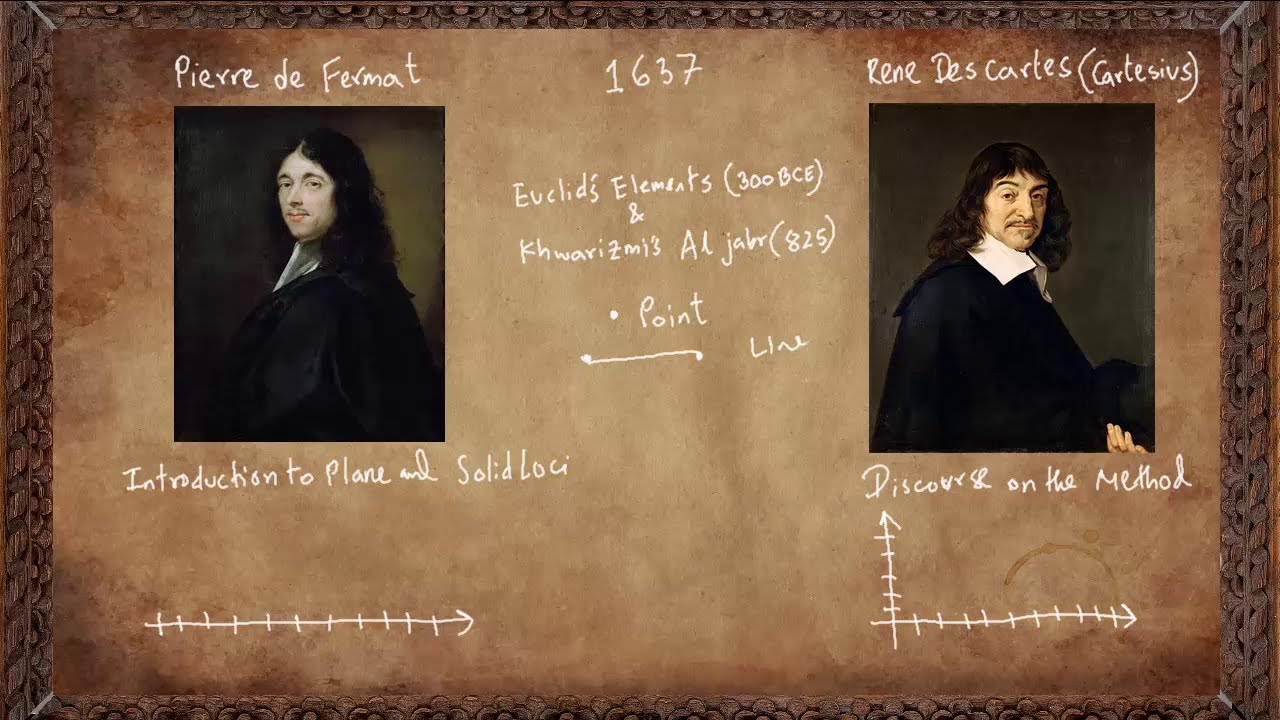 Pierre de Fermat
1637
Rene DesCartes (Cartesius)
Euclid's Elements (300BCE)
&
Khwarizmi's Al jabr (825)
Point
Line
Introduction to Plane and Solid Loci
Discourse on the Method